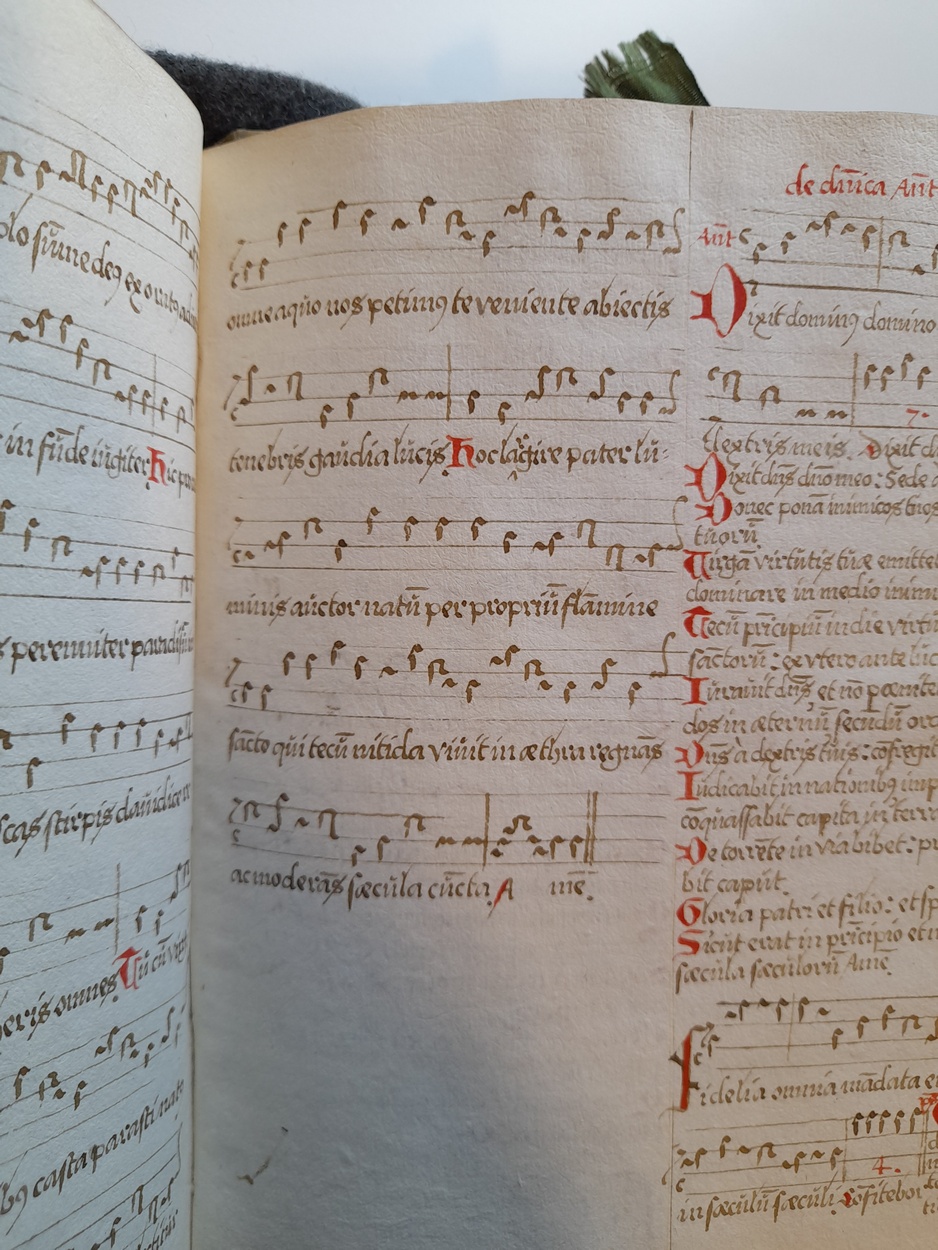 in fūde iūgiter Hic
s perenniter paradisū
cas stirpis dauidice
eris omnes Tu cū
bꝰ casta parasti nato
omne a quo nos petimꝰ te veniente abiectis
tenebris gaudia lucis Hoc lagire pater lu-
minis auctor natū per propriū flamine
sacto qui tecū nitida viuit in æthra regnās
ac moderās sæcula cūcta. A mē.
de dn̄ica Ant
Ant
Dixit dominꝰ domino
dextris meis. Dixit d
7.
Dixit dn̄s dn̄o meo: Sede a
Donec ponā inimicos tuos
tuorū
Virgā virtutis tuæ emittet
dominare in medio inimi
Tecū prīcipiū in die virtu
sāctorū: ex vtero ante luci
Iurauit dn̄s et nō pœnite
dos in æternū secūdū ord
Dn̄s a dextris tuis: cōfregit
Iudicabit in nationibꝰ imp
cōquassabit capita in terra
De torrēte in via bibet: pr
bit caput.
Gloria patri et filio: et sp
Sicut erat in prīcipio et n
sæcula sæculorū Amē.
Fidelia omnia mādata e
4.
in sæculū sæculi. Cōfitebor